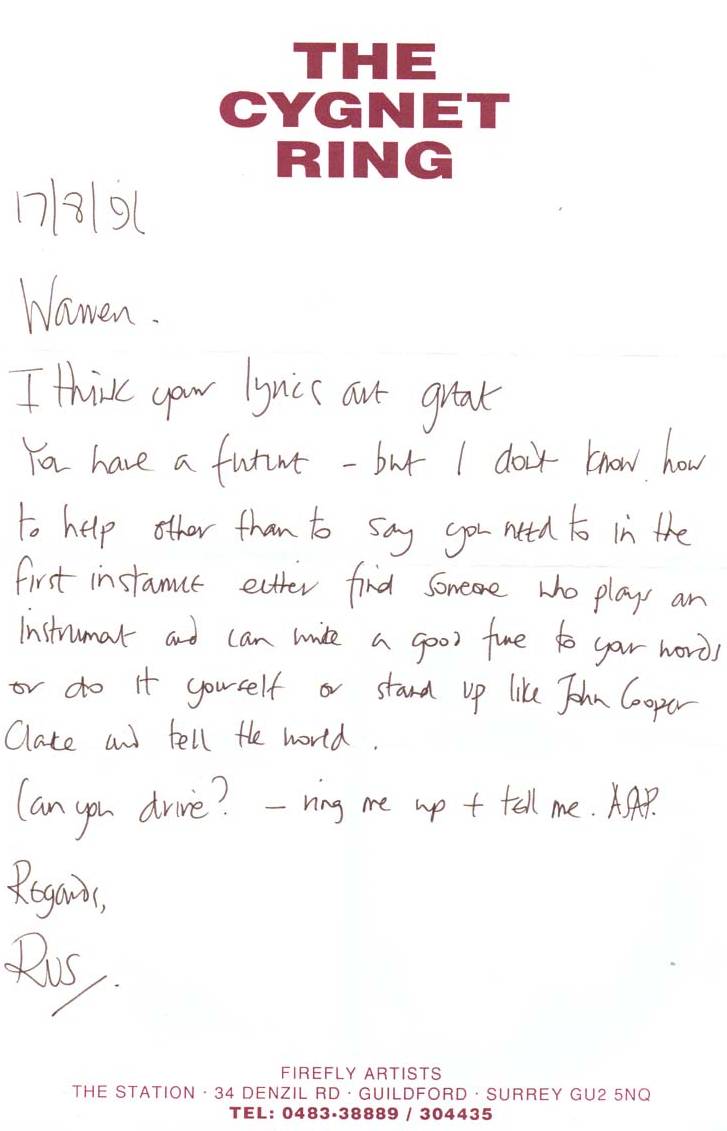 THE
CYGNET
RING
17/8/91
Warren.
I think your lyrics are great
You have a future - but I don't know how
to help other than to say you need to in the
first instance either find someone who plays an
instrument and can write a good tune to your words
or do it yourself or stand up like John Cooper
Clarke and tell the world.
Can you drive? - ring me up + tell me. ASAP.
Regards,
Rus
FIREFLY ARTISTS
THE STATION · 34 DENZIL RD · GUILDFORD · SURREY GU2 5NQ
TEL: 0483-38889 / 304435